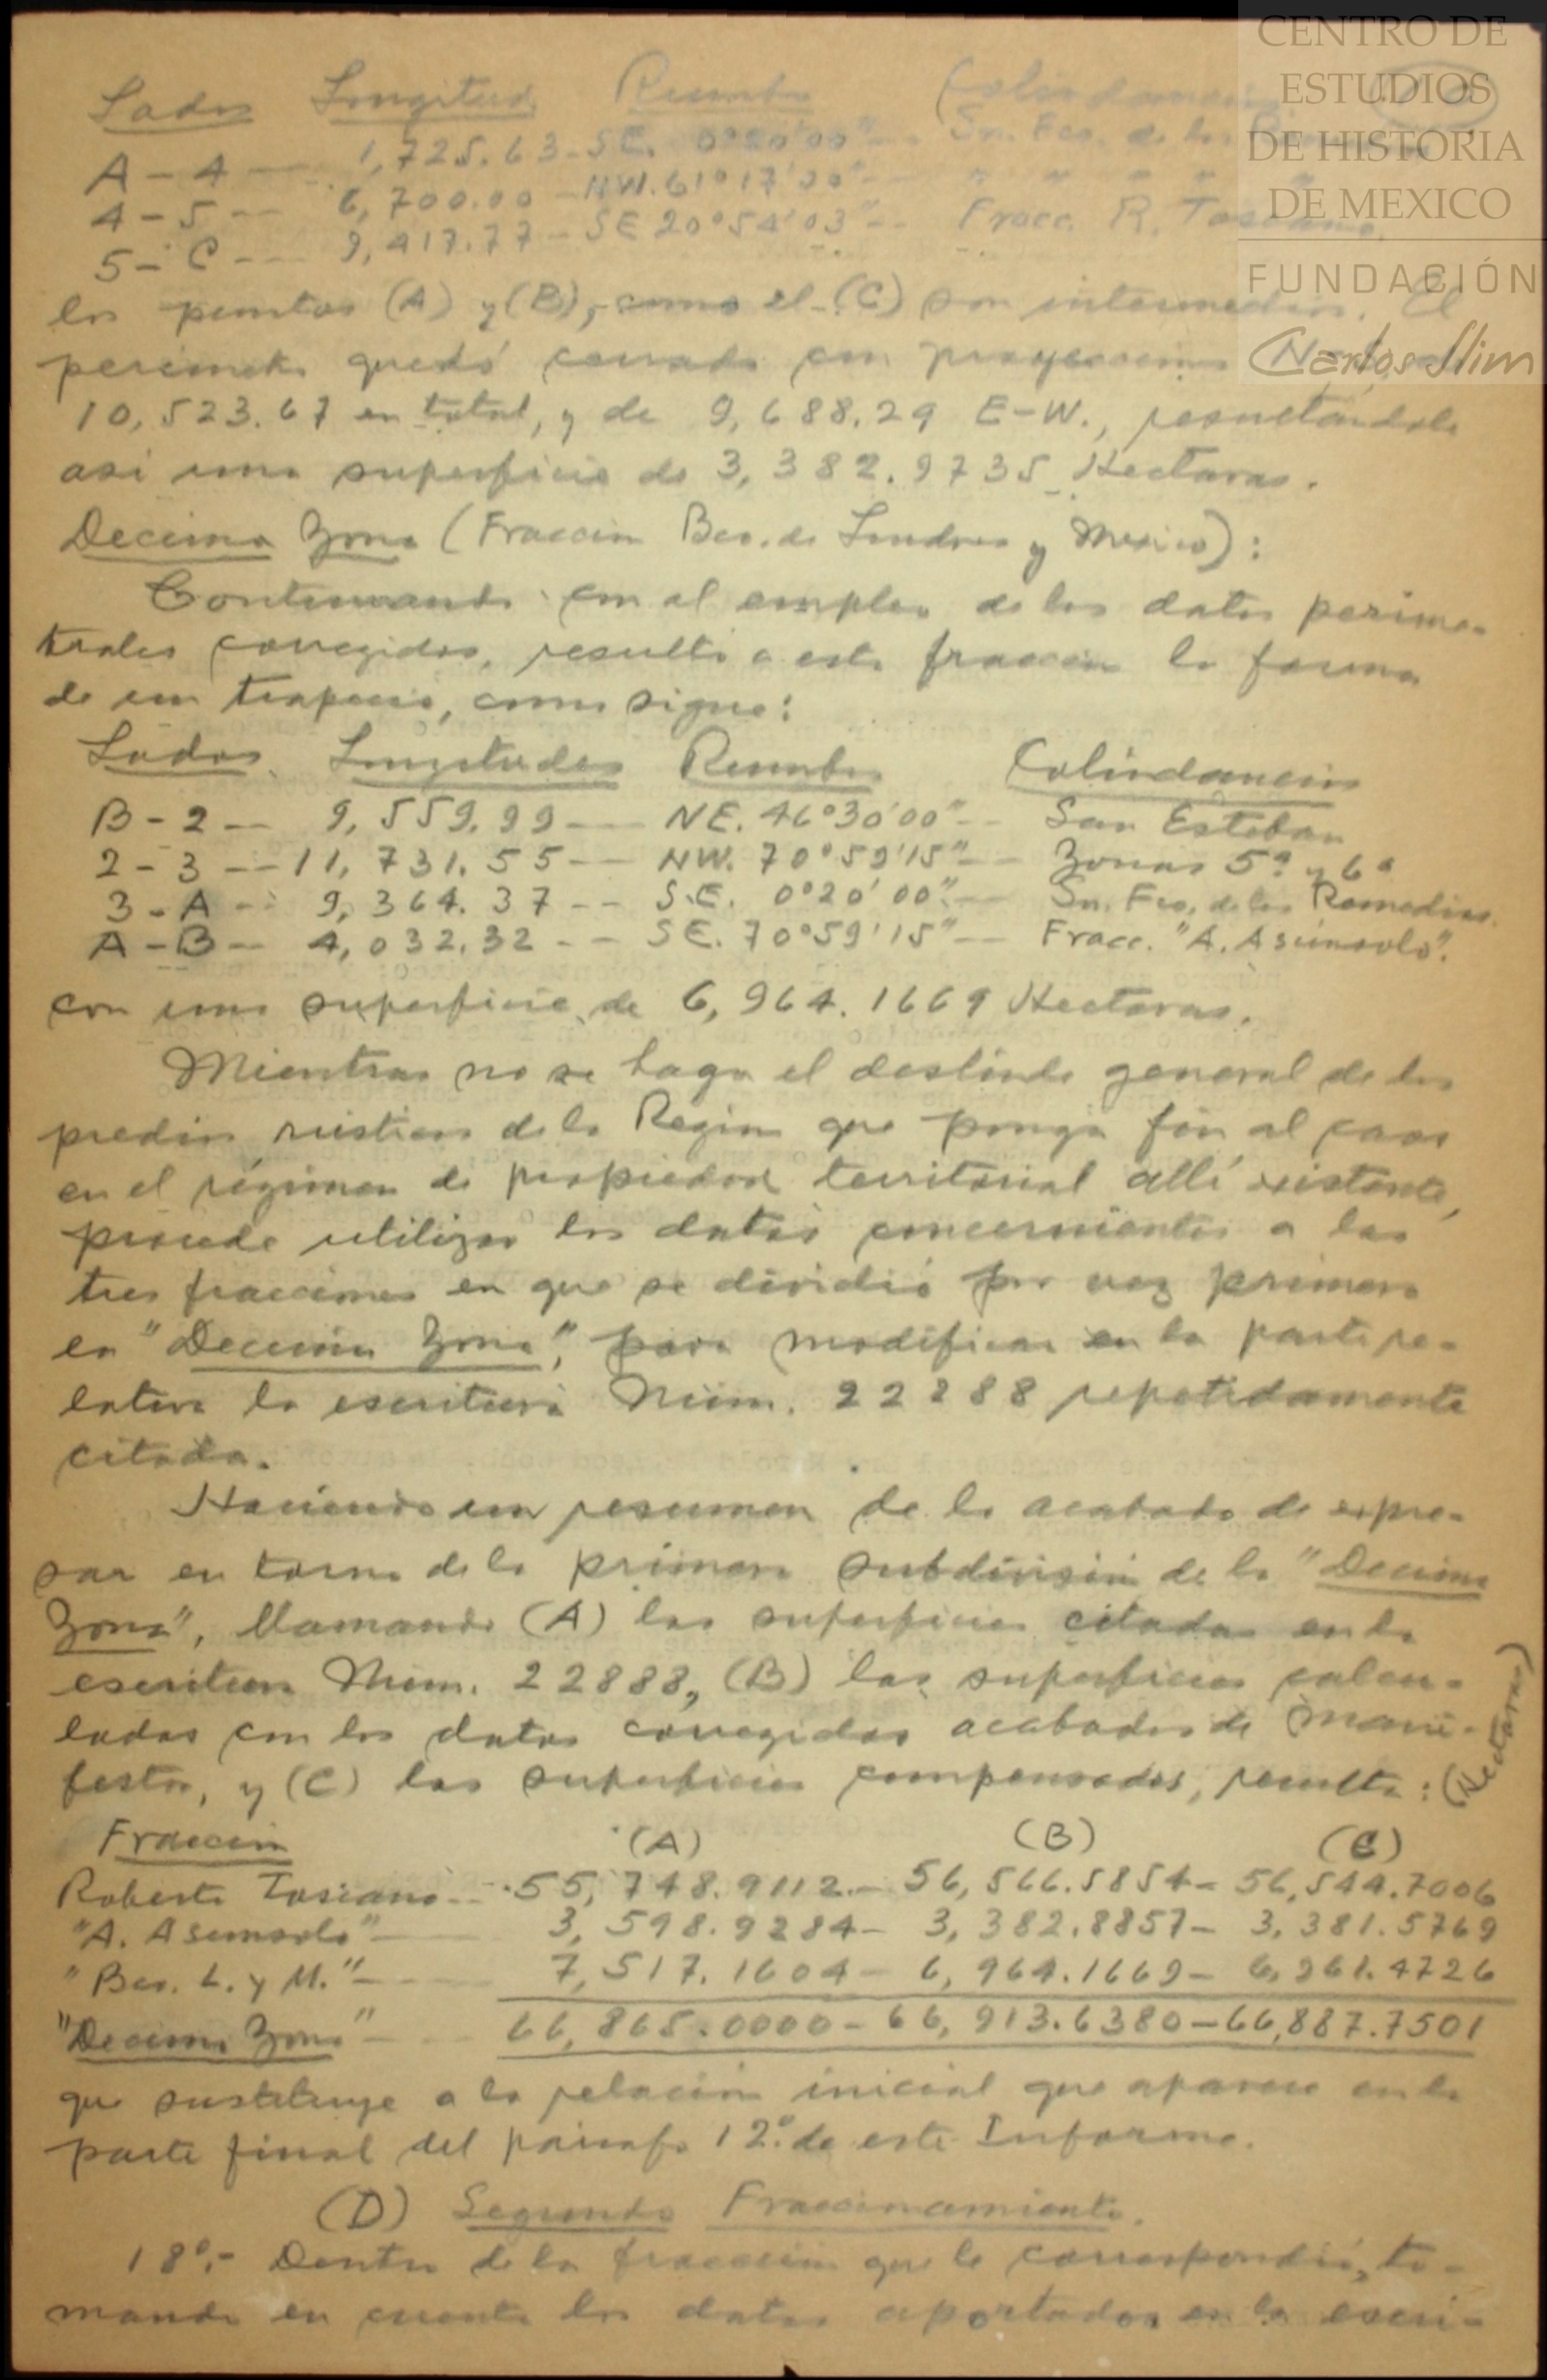 CENTRO DE
ESTUDIOS
DE HISTORIA
DE MEXICO
FUNDACIÓN
Carlos Slim
Lados Longitud Rumbo Colindancias
A-4 — 1,725.63 - SE. 0°20'00" -- Sn. Fco. de los
4-5 -- 6,700.00 - NW. 61°17'00" -- " " " " "
5-C -- 9,417.77 - SE 20°54'03" -- Fracc. R. Toscano.
los puntos (A) y (B), como el (C) son intermedios. El
perimetro quedó cerrado con proyecciones
10,523.67 en total, y de 9,688.29 E-W., resultándole
asi una superficie de 3,382.9735 Hectaras.
Decima Zona (Fraccion Bco. de Londres y Mexico):
Continuando con el empleo de los datos perime-
trales corregidos, resulta a esta fraccion la forma
de un trapecio, como sigue:
Lados Longitudes Rumbos Colindancias
B-2 — 9,559.99 — NE. 46°30'00" -- San Esteban
2-3 -- 11,731.55 — NW. 70°59'15" -- Zonas 5ª y 6ª
3-A -- 9,364.37 -- S.E. 0°20'00" — Sn. Fco. de los Remedios.
A-B - 4,032.32 -- SE. 70°59'15" — Fracc. "A. Asúnsolo".
con una superficie de 6,964.1669 Hectaras.
Mientras no se haga el deslinde general de los
predios rústicos de la Region que ponga fin al caos
en el régimen de propiedad territorial allí existente,
procede utilizar los datos concernientes a las
tres fracciones en que se dividió por vez primera
la "Decima Zona", para modificar en la parte re-
lativa la escritura Núm. 22288 repetidamente
citada.
Haciendo un resumen de lo acabado de expre-
sar en torno de la primera subdivisión de la "Decima
Zona", llamando (A) las superficies citadas en la
escritura Núm. 22888, (B) las superficies calcu-
ladas con los datos corregidos acabados de mani-
festar, y (C) las superficies compensadas, resulta: (Hectaras)
Fraccion (A) (B) (C)
Roberto Toscano -- 55,748.9112 - 56,566.5854 - 56,544.7006
"A. Asunsolo" — 3,598.9284 - 3,382.8857 - 3,381.5769
"Bco. L. y M." — 7,517.1604 - 6,964.1669 - 6,961.4726
"Decima Zona" — 66,865.0000 - 66,913.6380 - 66,887.7501
que sustituye a la relación inicial que aparece en la
parte final del párrafo 12º de este Informe.
(D) Segundo Fraccionamiento.
18º.- Dentro de la fracción que le correspondió, to-
mando en cuenta los datos aportados en la escri-